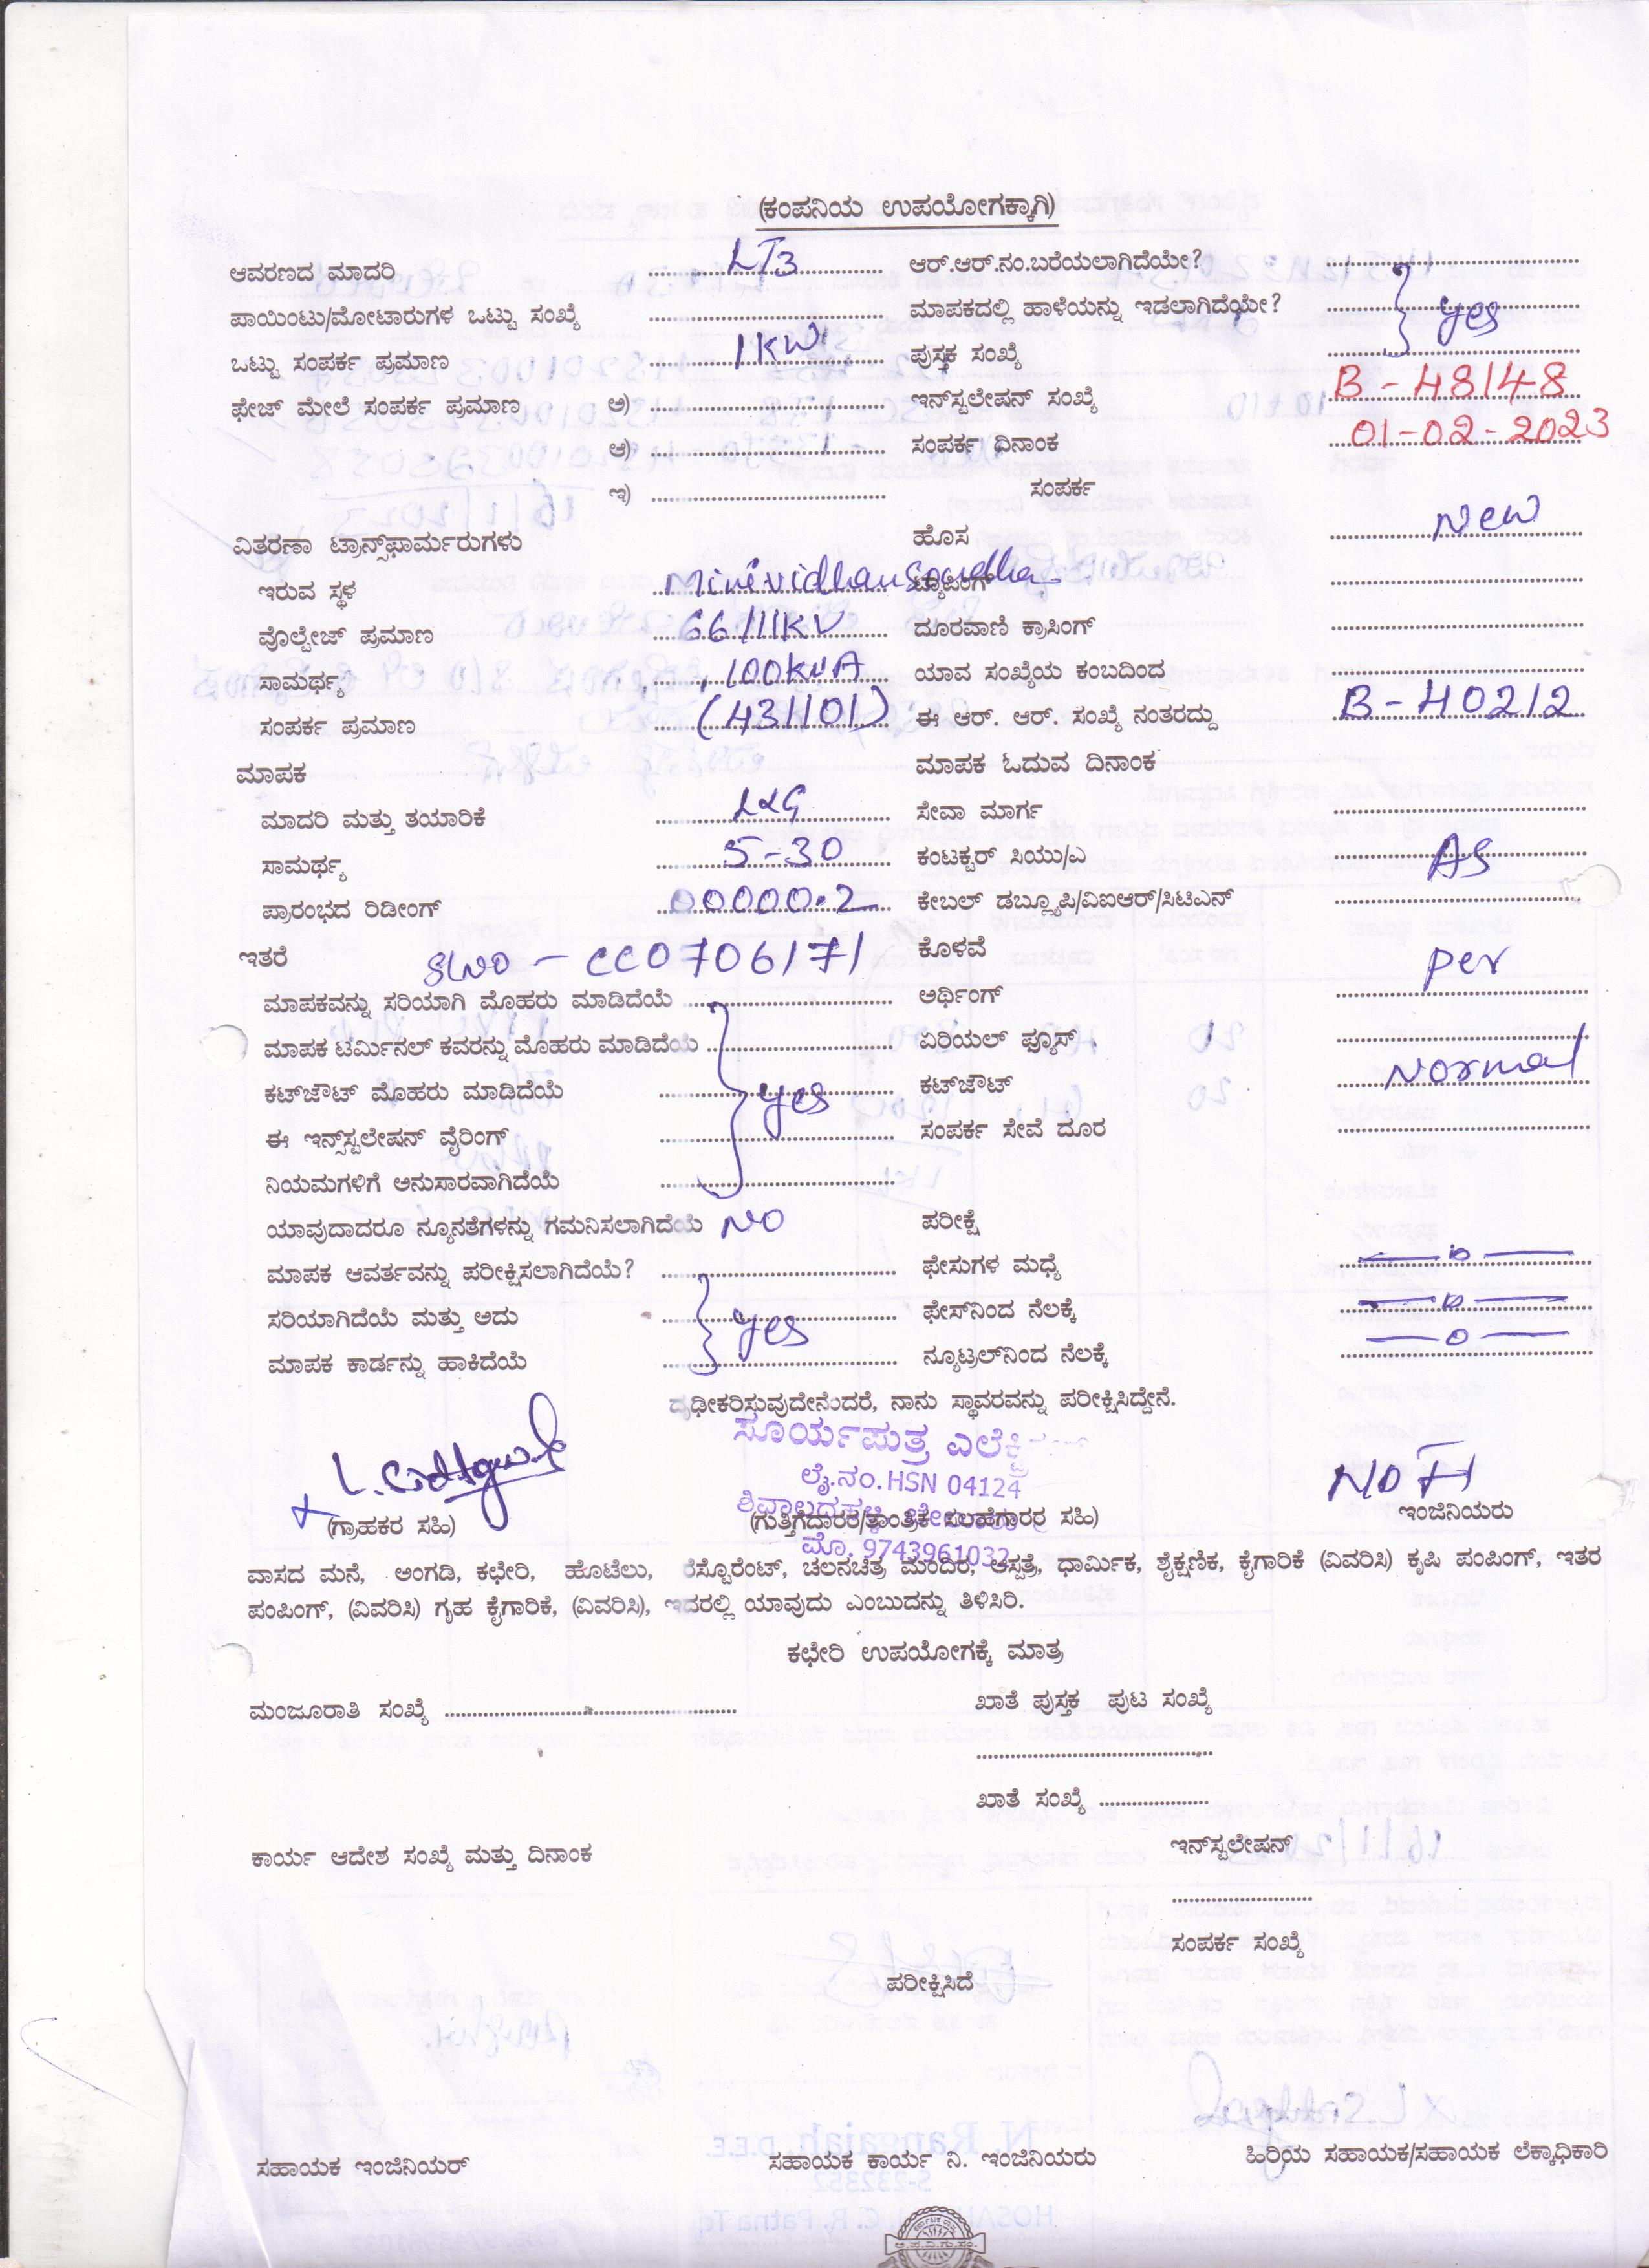 (ಕಂಪನಿಯ ಉಪಯೋಗಕ್ಕಾಗಿ)
ಆವರಣದ ಮಾದರಿ LT3 ಆರ್.ಆರ್.ನಂ.ಬರೆಯಲಾಗಿದೆಯೇ?
ಪಾಯಿಂಟು/ಮೋಟಾರುಗಳ ಒಟ್ಟು ಸಂಖ್ಯೆ ಮಾಪಕದಲ್ಲಿ ಹಾಳೆಯನ್ನು ಇಡಲಾಗಿದೆಯೇ? yes
ಒಟ್ಟು ಸಂಪರ್ಕ ಪ್ರಮಾಣ 1KW ಪುಸ್ತಕ ಸಂಖ್ಯೆ
ಫೇಜ್ ಮೇಲೆ ಸಂಪರ್ಕ ಪ್ರಮಾಣ ಅ) ಇನ್‌ಸ್ಟಲೇಷನ್ ಸಂಖ್ಯೆ B-48148
ಆ) ಸಂಪರ್ಕ ದಿನಾಂಕ 01-02-2023
ಇ) ಸಂಪರ್ಕ
ವಿತರಣಾ ಟ್ರಾನ್ಸ್‌ಫಾರ್ಮರುಗಳು ಹೊಸ New
ಇರುವ ಸ್ಥಳ Minividhansoudha ಟ್ಯಾಪಿಂಗ್
ವೋಲ್ಟೇಜ್ ಪ್ರಮಾಣ 66/11KV ದೂರವಾಣಿ ಕ್ರಾಸಿಂಗ್
ಸಾಮರ್ಥ್ಯ 100KVA ಯಾವ ಸಂಖ್ಯೆಯ ಕಂಬದಿಂದ
ಸಂಪರ್ಕ ಪ್ರಮಾಣ (431101) ಈ ಆರ್. ಆರ್. ಸಂಖ್ಯೆ ನಂತರದ್ದು B-40212
ಮಾಪಕ ಮಾಪಕ ಓದುವ ದಿನಾಂಕ
ಮಾದರಿ ಮತ್ತು ತಯಾರಿಕೆ L&G ಸೇವಾ ಮಾರ್ಗ
ಸಾಮರ್ಥ್ಯ 5-30 ಕಂಟಕ್ಟರ್ ಸಿಯು/ಎ AS
ಪ್ರಾರಂಭದ ರಿಡೀಂಗ್ 00000.2 ಕೇಬಲ್ ಡಬ್ಲ್ಯೂಪಿ/ವಿಐಆರ್/ಸಿಟಿಎನ್
ಇತರೆ SLNO - CC0706171 ಕೊಳವೆ per
ಮಾಪಕವನ್ನು ಸರಿಯಾಗಿ ಮೊಹರು ಮಾಡಿದೆಯೆ ಅರ್ಥಿಂಗ್
ಮಾಪಕ ಟರ್ಮಿನಲ್ ಕವರನ್ನು ಮೊಹರು ಮಾಡಿದೆಯೆ ಏರಿಯಲ್ ಫ್ಯೂಸ್
ಕಟ್‌ಔಟ್ ಮೊಹರು ಮಾಡಿದೆಯೆ yes ಕಟ್‌ಔಟ್ Normal
ಈ ಇನ್‌ಸ್ಟಲೇಷನ್ ವೈರಿಂಗ್ ಸಂಪರ್ಕ ಸೇವೆ ದೂರ
ನಿಯಮಗಳಿಗೆ ಅನುಸಾರವಾಗಿದೆಯೆ
ಯಾವುದಾದರೂ ನ್ಯೂನತೆಗಳನ್ನು ಗಮನಿಸಲಾಗಿದೆಯೆ NO ಪರೀಕ್ಷೆ
ಮಾಪಕ ಆವರ್ತವನ್ನು ಪರೀಕ್ಷಿಸಲಾಗಿದೆಯೆ? ಫೇಸುಗಳ ಮಧ್ಯೆ —0—
ಸರಿಯಾಗಿದೆಯೆ ಮತ್ತು ಅದು yes ಫೇಸ್‌ನಿಂದ ನೆಲಕ್ಕೆ —0—
ಮಾಪಕ ಕಾರ್ಡನ್ನು ಹಾಕಿದೆಯೆ ನ್ಯೂಟ್ರಲ್‌ನಿಂದ ನೆಲಕ್ಕೆ —0—
ದೃಢೀಕರಿಸುವುದೇನೆಂದರೆ, ನಾನು ಸ್ಥಾವರವನ್ನು ಪರೀಕ್ಷಿಸಿದ್ದೇನೆ.
ಸೂರ್ಯಪುತ್ರ
ಲೈ.ನಂ.HSN 04124
(ಗ್ರಾಹಕರ ಸಹಿ) (ಗುತ್ತಿಗೆದಾರರ/ತಾಂತ್ರಿಕ ಸಲಹೆಗಾರರ ಸಹಿ) ಇಂಜಿನಿಯರು
ಮೊ. 9743961032
ವಾಸದ ಮನೆ, ಅಂಗಡಿ, ಕಛೇರಿ, ಹೊಟೆಲು, ರೆಸ್ಟೊರೆಂಟ್, ಚಲನಚಿತ್ರ ಮಂದಿರ, ಆಸ್ಪತ್ರೆ, ಧಾರ್ಮಿಕ, ಶೈಕ್ಷಣಿಕ, ಕೈಗಾರಿಕೆ (ವಿವರಿಸಿ) ಕೃಷಿ ಪಂಪಿಂಗ್, ಇತರ
ಪಂಪಿಂಗ್, (ವಿವರಿಸಿ) ಗೃಹ ಕೈಗಾರಿಕೆ, (ವಿವರಿಸಿ), ಇದರಲ್ಲಿ ಯಾವುದು ಎಂಬುದನ್ನು ತಿಳಿಸಿರಿ.
ಕಛೇರಿ ಉಪಯೋಗಕ್ಕೆ ಮಾತ್ರ
ಮಂಜೂರಾತಿ ಸಂಖ್ಯೆ ಖಾತೆ ಪುಸ್ತಕ ಪುಟ ಸಂಖ್ಯೆ
ಖಾತೆ ಸಂಖ್ಯೆ
ಕಾರ್ಯ ಆದೇಶ ಸಂಖ್ಯೆ ಮತ್ತು ದಿನಾಂಕ ಇನ್‌ಸ್ಟಲೇಷನ್
ಸಂಪರ್ಕ ಸಂಖ್ಯೆ
ಪರೀಕ್ಷಿಸಿದೆ
ಸಹಾಯಕ ಇಂಜಿನಿಯರ್ ಸಹಾಯಕ ಕಾರ್ಯ ನಿ. ಇಂಜಿನಿಯರು ಹಿರಿಯ ಸಹಾಯಕ/ಸಹಾಯಕ ಲೆಕ್ಕಾಧಿಕಾರಿ